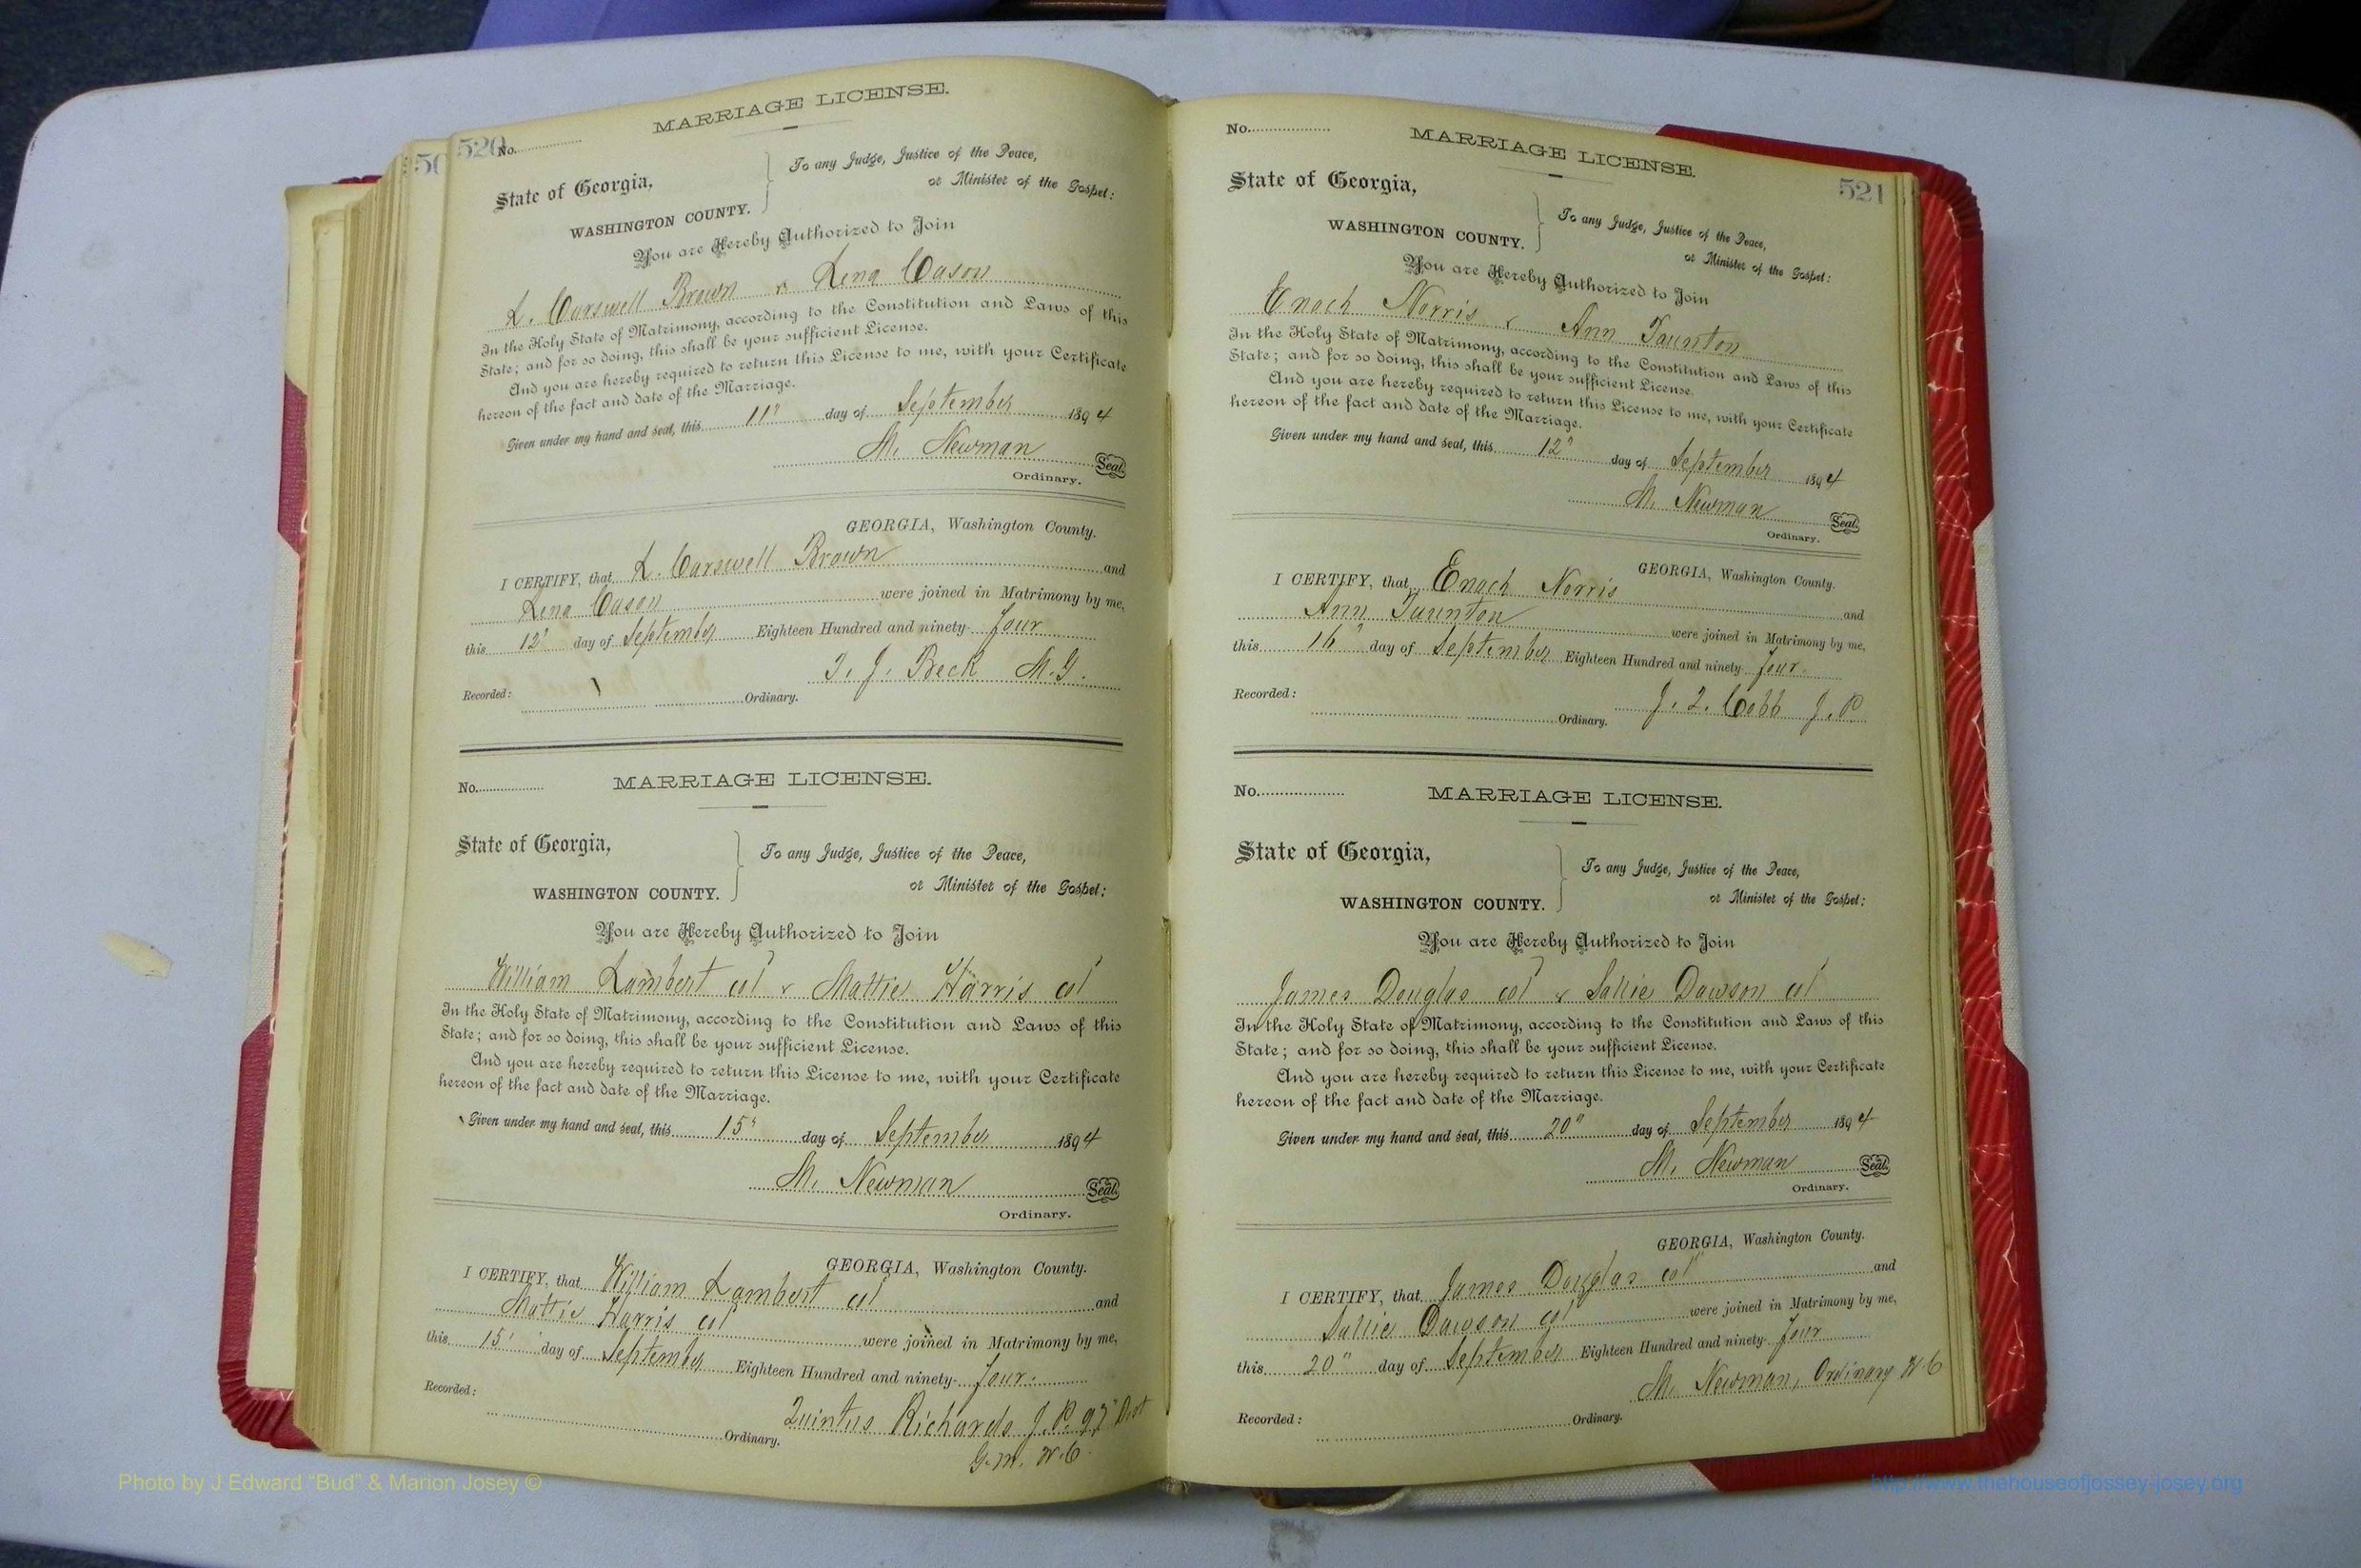 520
No.
MARRIAGE LICENSE.
State of Georgia,
WASHINGTON COUNTY.
To any Judge, Justice of the Peace,
or Minister of the Gospel:
You are Hereby Authorized to Join
L. Carswell Brown & Lena Cason
In the Holy State of Matrimony, according to the Constitution and Laws of this
State; and for so doing, this shall be your sufficient License.
And you are hereby required to return this License to me, with your Certificate
hereon of the fact and date of the Marriage.
Given under my hand and seal, this 11" day of September 1894
M. Newman Seal.
Ordinary.
GEORGIA, Washington County.
I CERTIFY, that L. Carswell Brown and
Lena Cason were joined in Matrimony by me,
this 12" day of September Eighteen Hundred and ninety-four
T. J. Beck M.G.
Recorded: Ordinary.
No.
MARRIAGE LICENSE.
State of Georgia,
WASHINGTON COUNTY.
To any Judge, Justice of the Peace,
or Minister of the Gospel:
You are Hereby Authorized to Join
William Lambert col & Mattie Harris col
In the Holy State of Matrimony, according to the Constitution and Laws of this
State; and for so doing, this shall be your sufficient License.
And you are hereby required to return this License to me, with your Certificate
hereon of the fact and date of the Marriage.
Given under my hand and seal, this 15" day of September 1894
M. Newman Seal.
Ordinary.
GEORGIA, Washington County.
I CERTIFY, that William Lambert col and
Mattie Harris col were joined in Matrimony by me,
this 15" day of September Eighteen Hundred and ninety-four.
Quintus Richards J.P. 97" Dist
Recorded: Ordinary.
G.M. W.C.
521
No.
MARRIAGE LICENSE.
State of Georgia,
WASHINGTON COUNTY.
To any Judge, Justice of the Peace,
or Minister of the Gospel:
You are Hereby Authorized to Join
Enoch Norris & Ann Taunton
In the Holy State of Matrimony, according to the Constitution and Laws of this
State; and for so doing, this shall be your sufficient License.
And you are hereby required to return this License to me, with your Certificate
hereon of the fact and date of the Marriage.
Given under my hand and seal, this 12" day of September 1894
M. Newman Seal.
Ordinary.
GEORGIA, Washington County.
I CERTIFY, that Enoch Norris and
Ann Taunton were joined in Matrimony by me,
this 16" day of September Eighteen Hundred and ninety-four.
J. Cobb J.P.
Recorded: Ordinary.
No.
MARRIAGE LICENSE.
State of Georgia,
WASHINGTON COUNTY.
To any Judge, Justice of the Peace,
or Minister of the Gospel:
You are Hereby Authorized to Join
James Douglas col & Sallie Dawson col
In the Holy State of Matrimony, according to the Constitution and Laws of this
State; and for so doing, this shall be your sufficient License.
And you are hereby required to return this License to me, with your Certificate
hereon of the fact and date of the Marriage.
Given under my hand and seal, this 20" day of September 1894
M. Newman Seal.
Ordinary.
GEORGIA, Washington County.
I CERTIFY, that James Douglas col and
Sallie Dawson col were joined in Matrimony by me,
this 20" day of September Eighteen Hundred and ninety-four
M. Newman, Ordinary W.C
Recorded: Ordinary.
Photo by J Edward “Bud” & Marion Josey ©
http://www.thehouseofjossey-josey.org